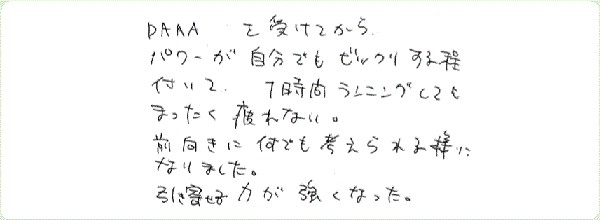 DAAA を受けてから
パワーが自分でもビックリする程
付いて、7時間ランニングしても
まったく疲れない。
前向きに何でも考えられる様に
なりました。
引き寄せ力が強くなった。